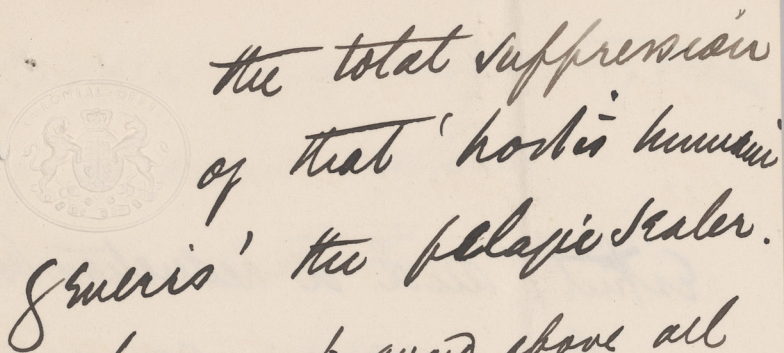 the total suppression
of that 'hostis humani
generis' the pelagic sealer.
guard above all